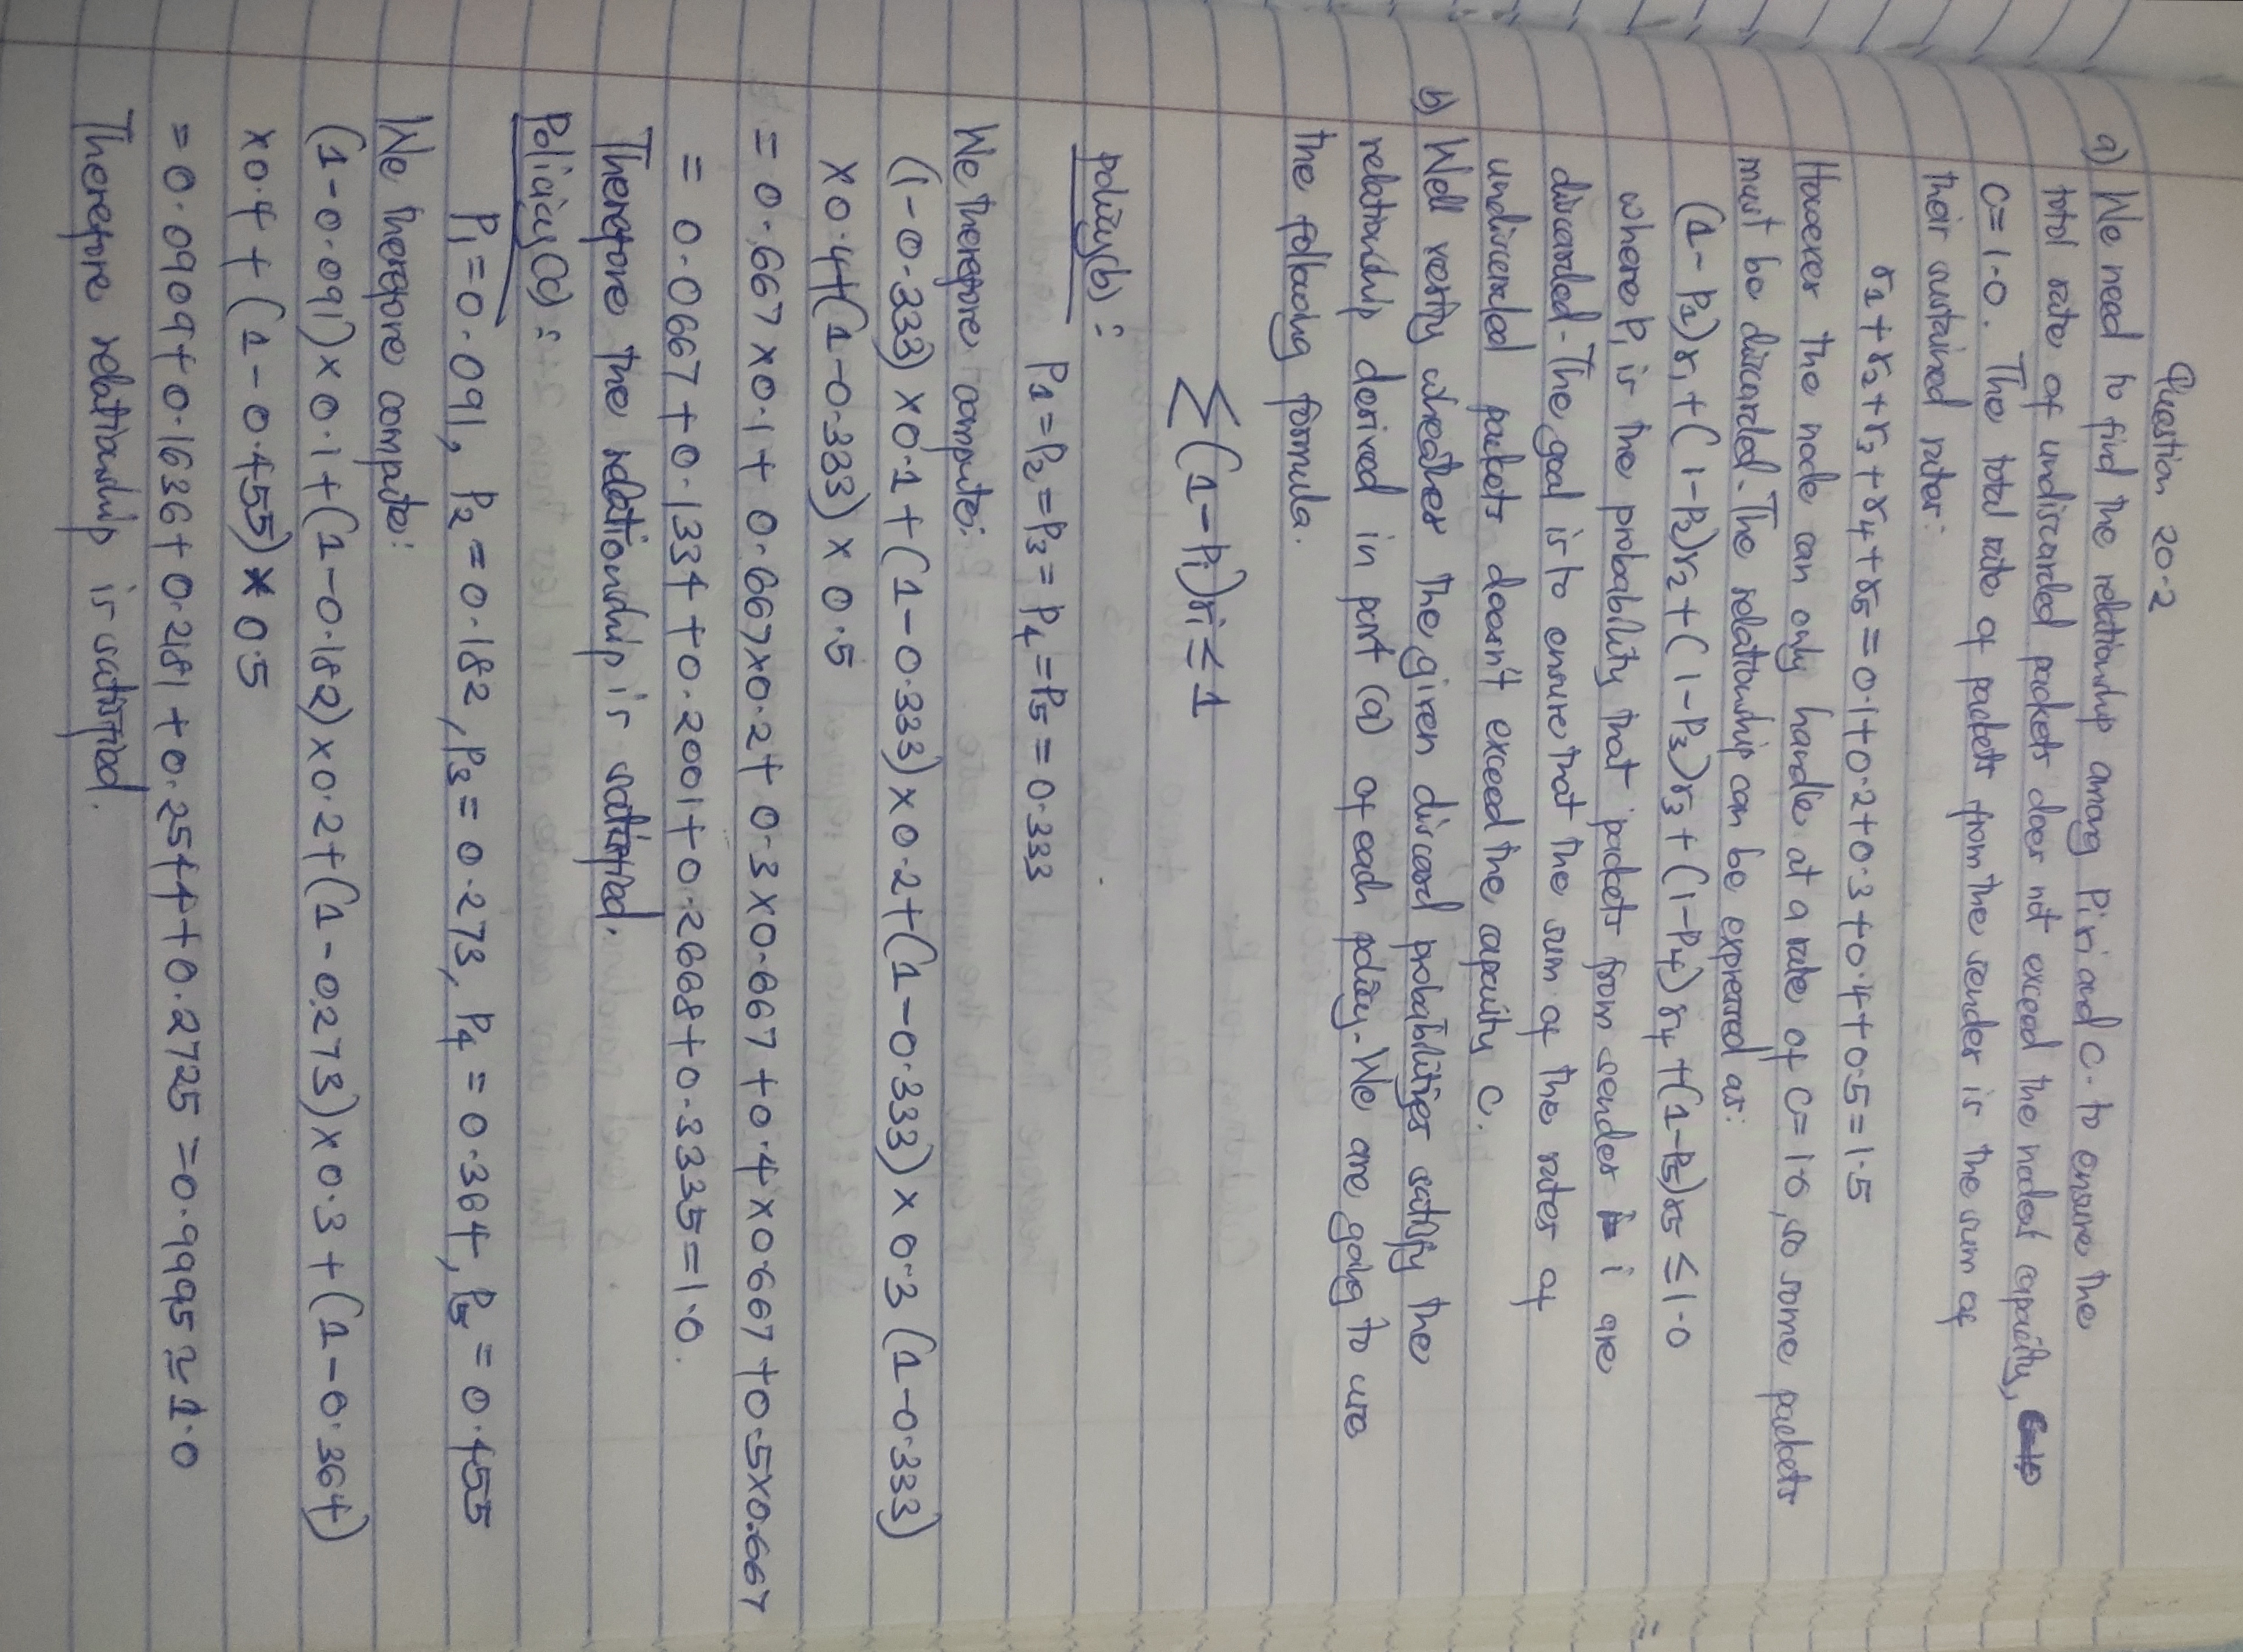 Question 20.2
a) We need to find the relationship among Pi ri and C. to ensure the
total rate of undiscarded packets does not exceed the nodes capacity,
C=1.0. The total rate of packets from the sender is the sum of
their sustained rates:
r1 + r2 + r3 + r4 + r5 = 0.1+0.2+0.3+0.4+0.5=1.5
However the node can only handle at a rate of C=1.0, so some packets
must be discarded. The relationship can be expressed as:
(1-P1)r1+(1-P2)r2+(1-P3)r3+(1-P4)r4+(1-P5)r5 ≤ 1.0
where Pi is the probability that packets from sender i are
discarded. The goal is to ensure that the sum of the rates of
undiscarded packets doesn't exceed the capacity C.
b) Well verify wheather the given discard probabilities satisfy the
relationship derived in part (a) of each policy. We are going to use
the following formula.
∑(1-Pi)ri ≤ 1
policy(b):
P1=P2=P3=P4=P5=0.333
We therefore compute:
(1-0.333)×0.1+(1-0.333)×0.2+(1-0.333)×0.3(1-0.333)
×0.4+(1-0.333)×0.5
=0.667×0.1+0.667×0.2+0.3×0.667+0.4×0.667+0.5×0.667
=0.0667+0.1334+0.2001+0.2668+0.3335=1.0.
Therefore the relationship is satisfied.
Policiy(c):
P1=0.091, P2=0.182, P3=0.273, P4=0.364, P5=0.455
We therefore compute:
(1-0.091)×0.1+(1-0.182)×0.2+(1-0.273)×0.3+(1-0.364)
×0.4+(1-0.455)×0.5
=0.0909+0.1636+0.2181+0.2544+0.2725=0.9995≃1.0
Therefore relationship is satisfied.